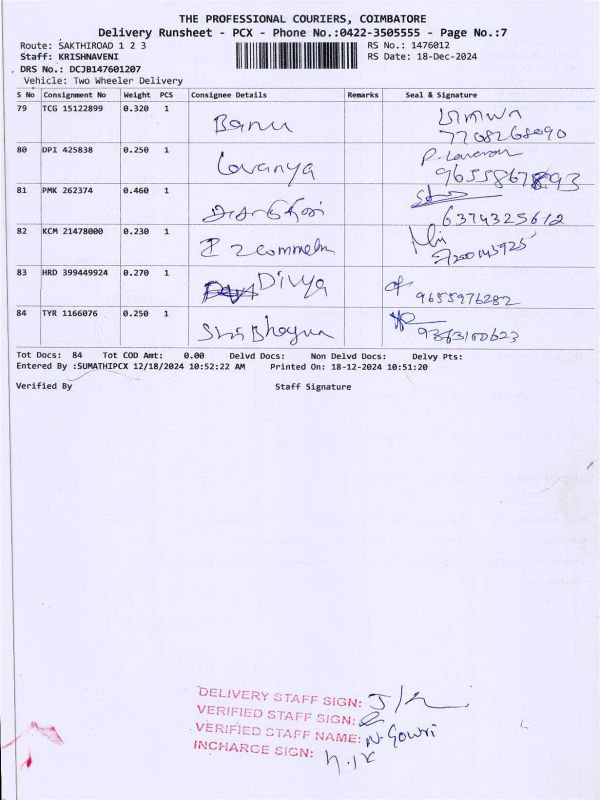 THE PROFESSIONAL COURIERS, COIMBATORE
Delivery Runsheet - PCX - Phone No.:0422-3505555 - Page No.:7
Route: SAKTHIROAD 1 2 3 RS No.: 1476012
Staff: KRISHNAVENI RS Date: 18-Dec-2024
DRS No.: DCJB147601207
Vehicle: Two Wheeler Delivery
S No Consignment No Weight PCS Consignee Details Remarks Seal & Signature
79 TCG 15122899 0.320 1 Banu
7708268090
80 DPI 425838 0.250 1 Lavanya
81 PMK 262374 0.460 1
6374325612
82 KCM 21478000 0.230 1
83 HRD 399449924 0.270 1 Divya
9655976282
84 TYR 1166076 0.250 1
9363100623
Tot Docs: 84 Tot COD Amt: 0.00 Delvd Docs: Non Delvd Docs: Delvy Pts:
Entered By :SUMATHIPCX 12/18/2024 10:52:22 AM Printed On: 18-12-2024 10:51:20
Verified By Staff Signature
DELIVERY STAFF SIGN:
VERIFIED STAFF SIGN:
VERIFIED STAFF NAME: N. Gowri
INCHARGE SIGN: